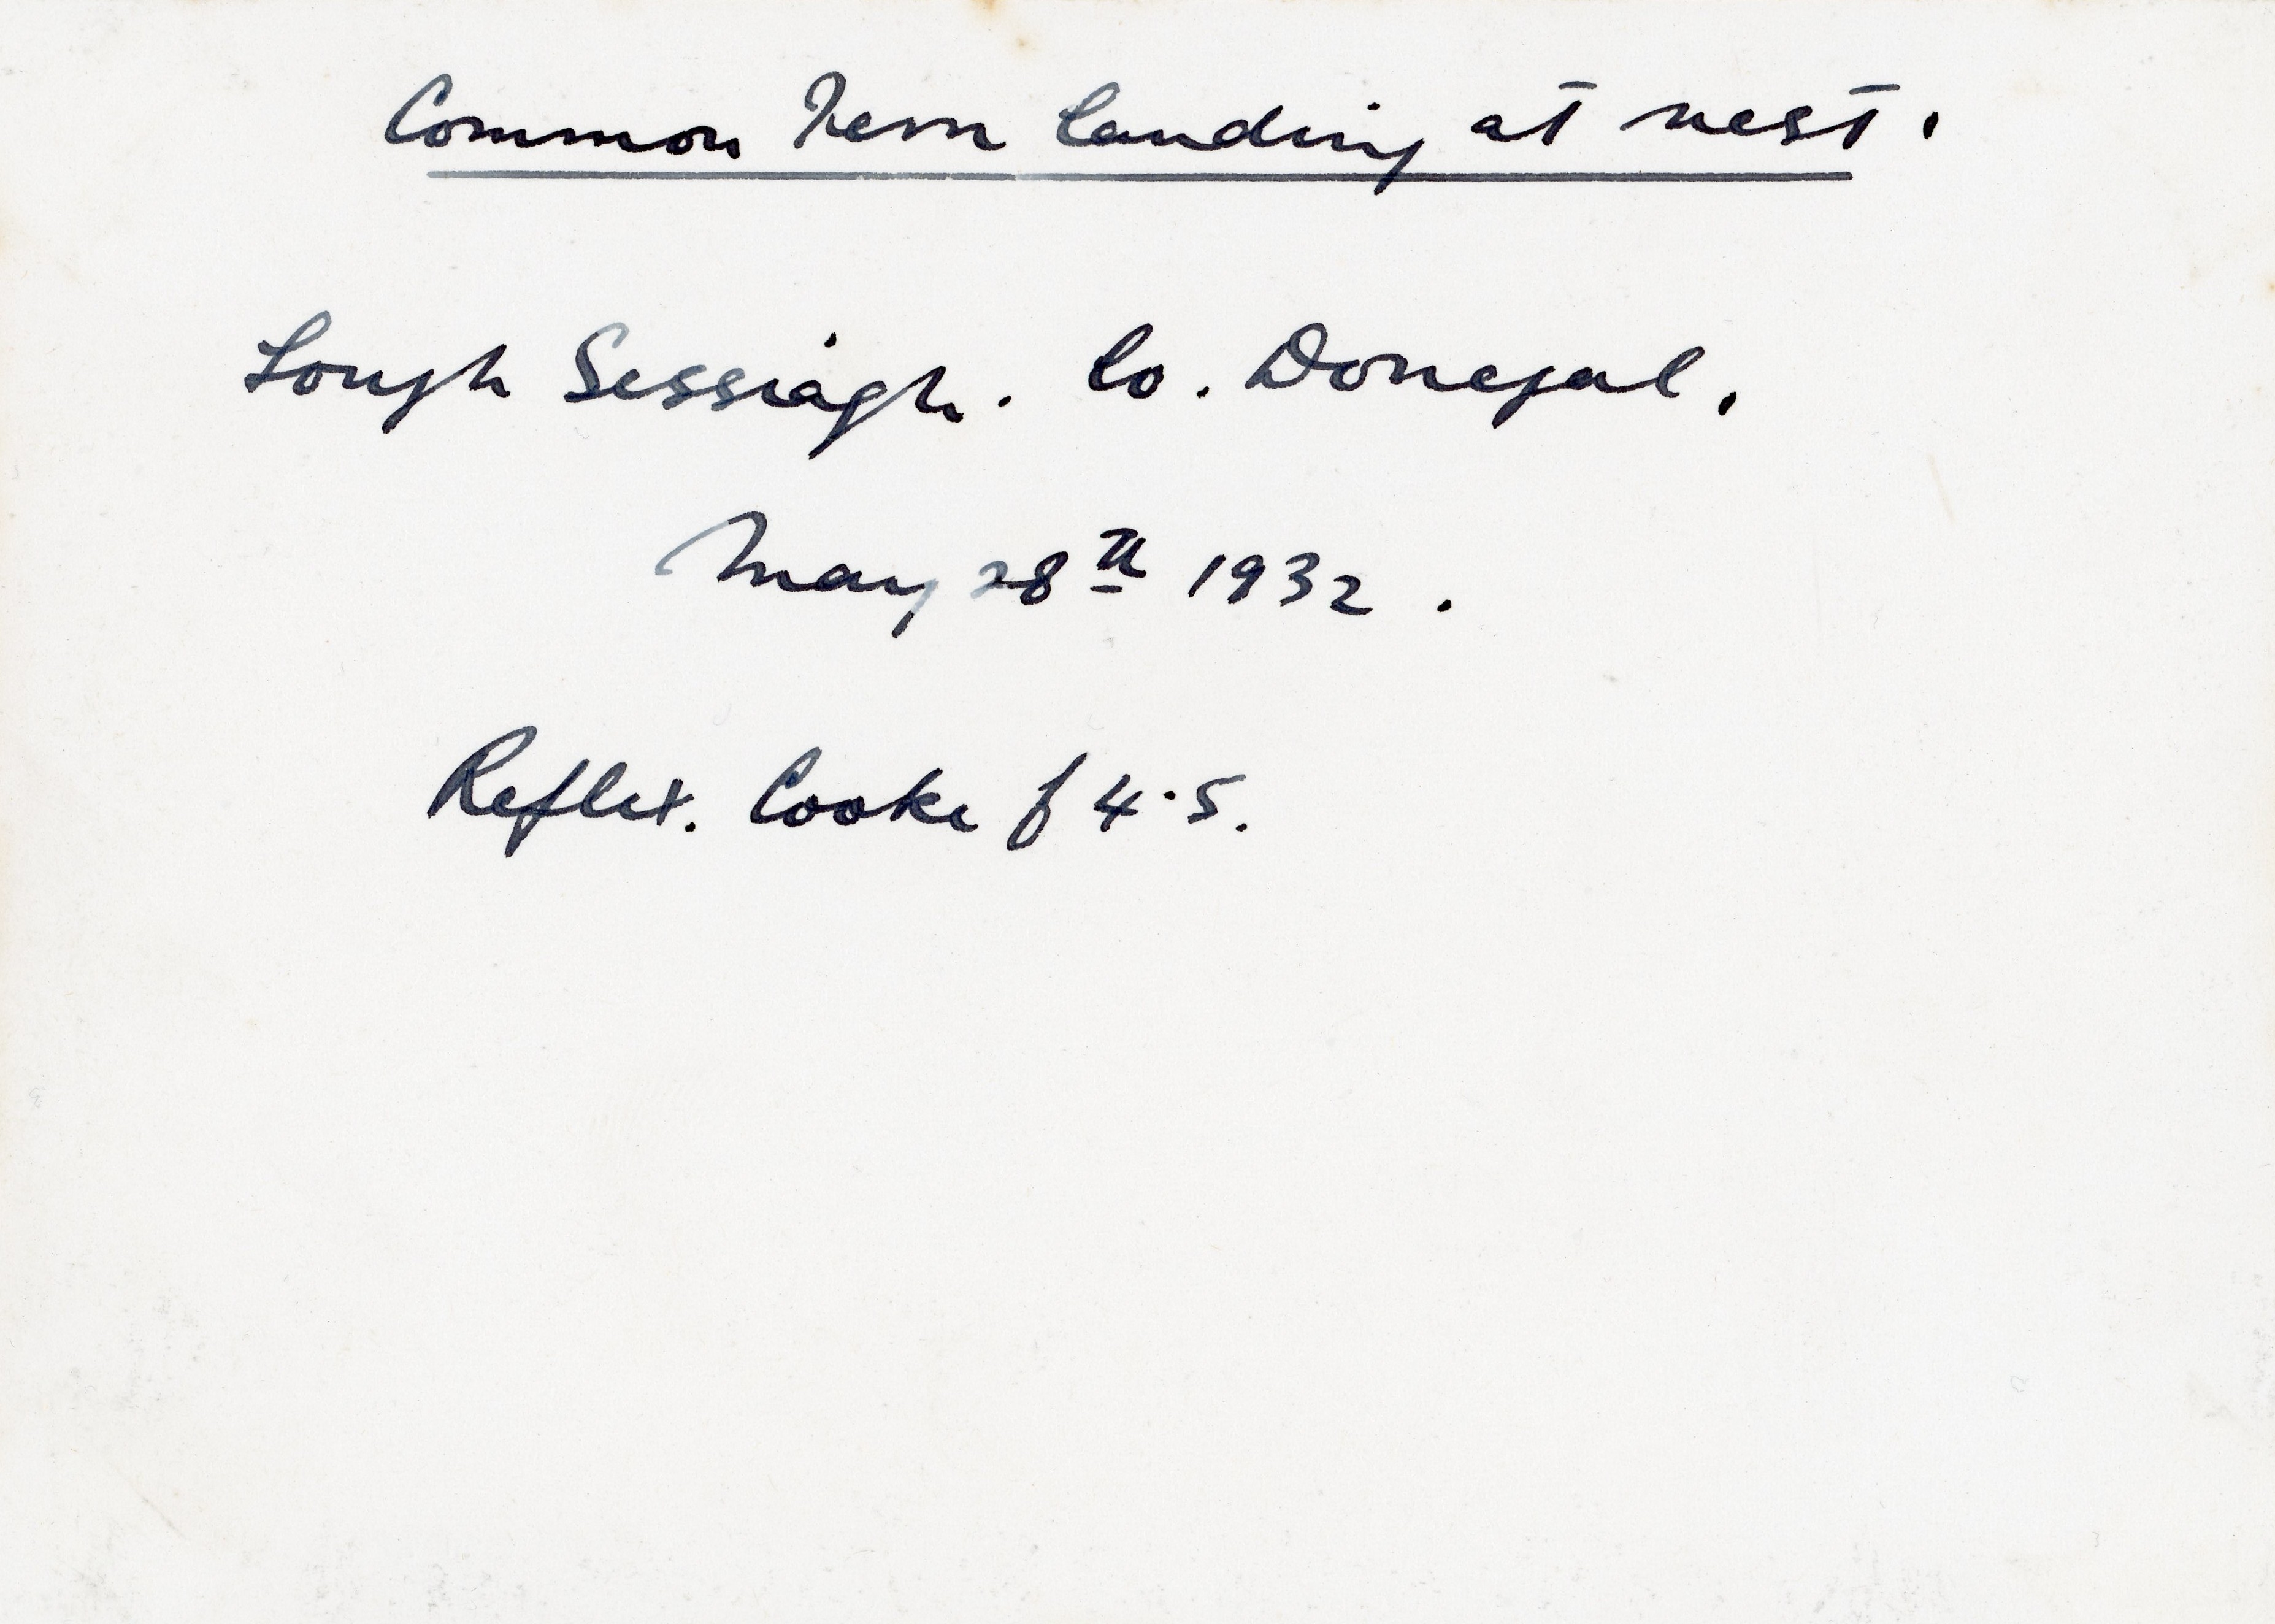 Common Tern landing at nest.
Lough Sessiagh. Co. Donegal.
May 28th 1932.
Reflex. Cooke f 4·5.